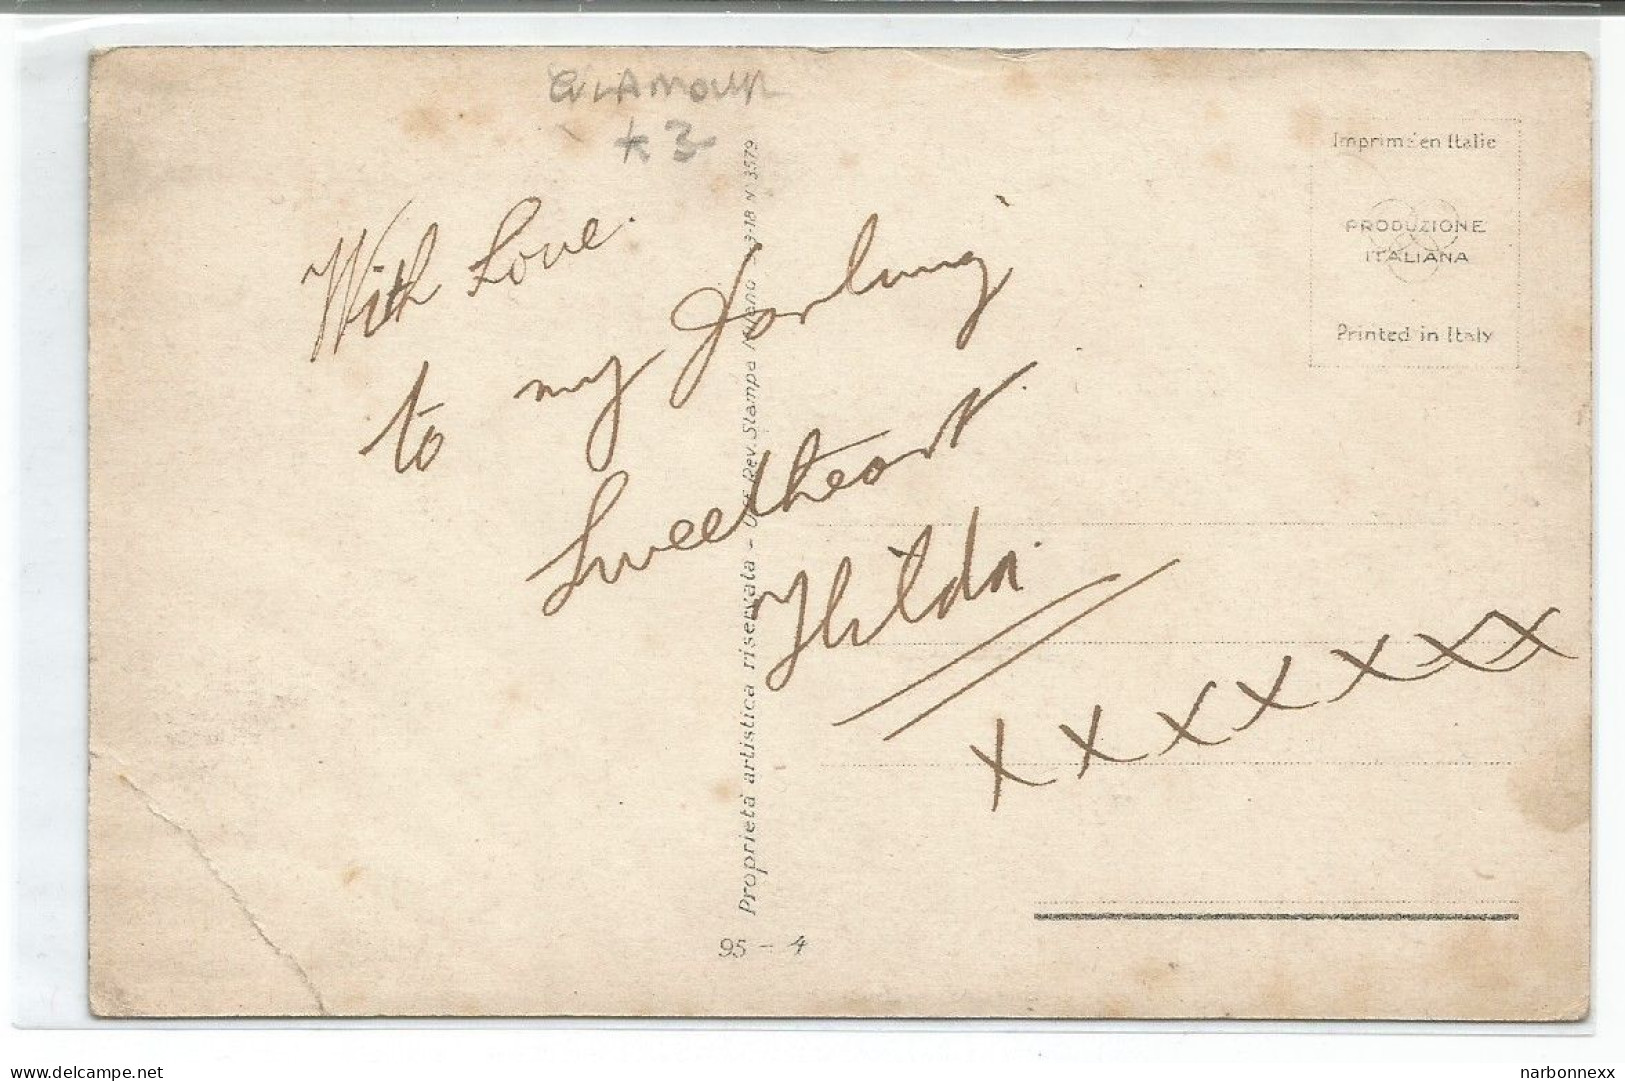 GLAMOUR
With Love.
to my Darling
Sweetheart.
Hilda.
X X X X X X X
Imprimé en Italie
PRODUZIONE
ITALIANA
Printed in Italy
Proprietà artistica riservata - Rev. Stampa Milano N. 3579
95 - 4
www.delcampe.net
narbonnexx